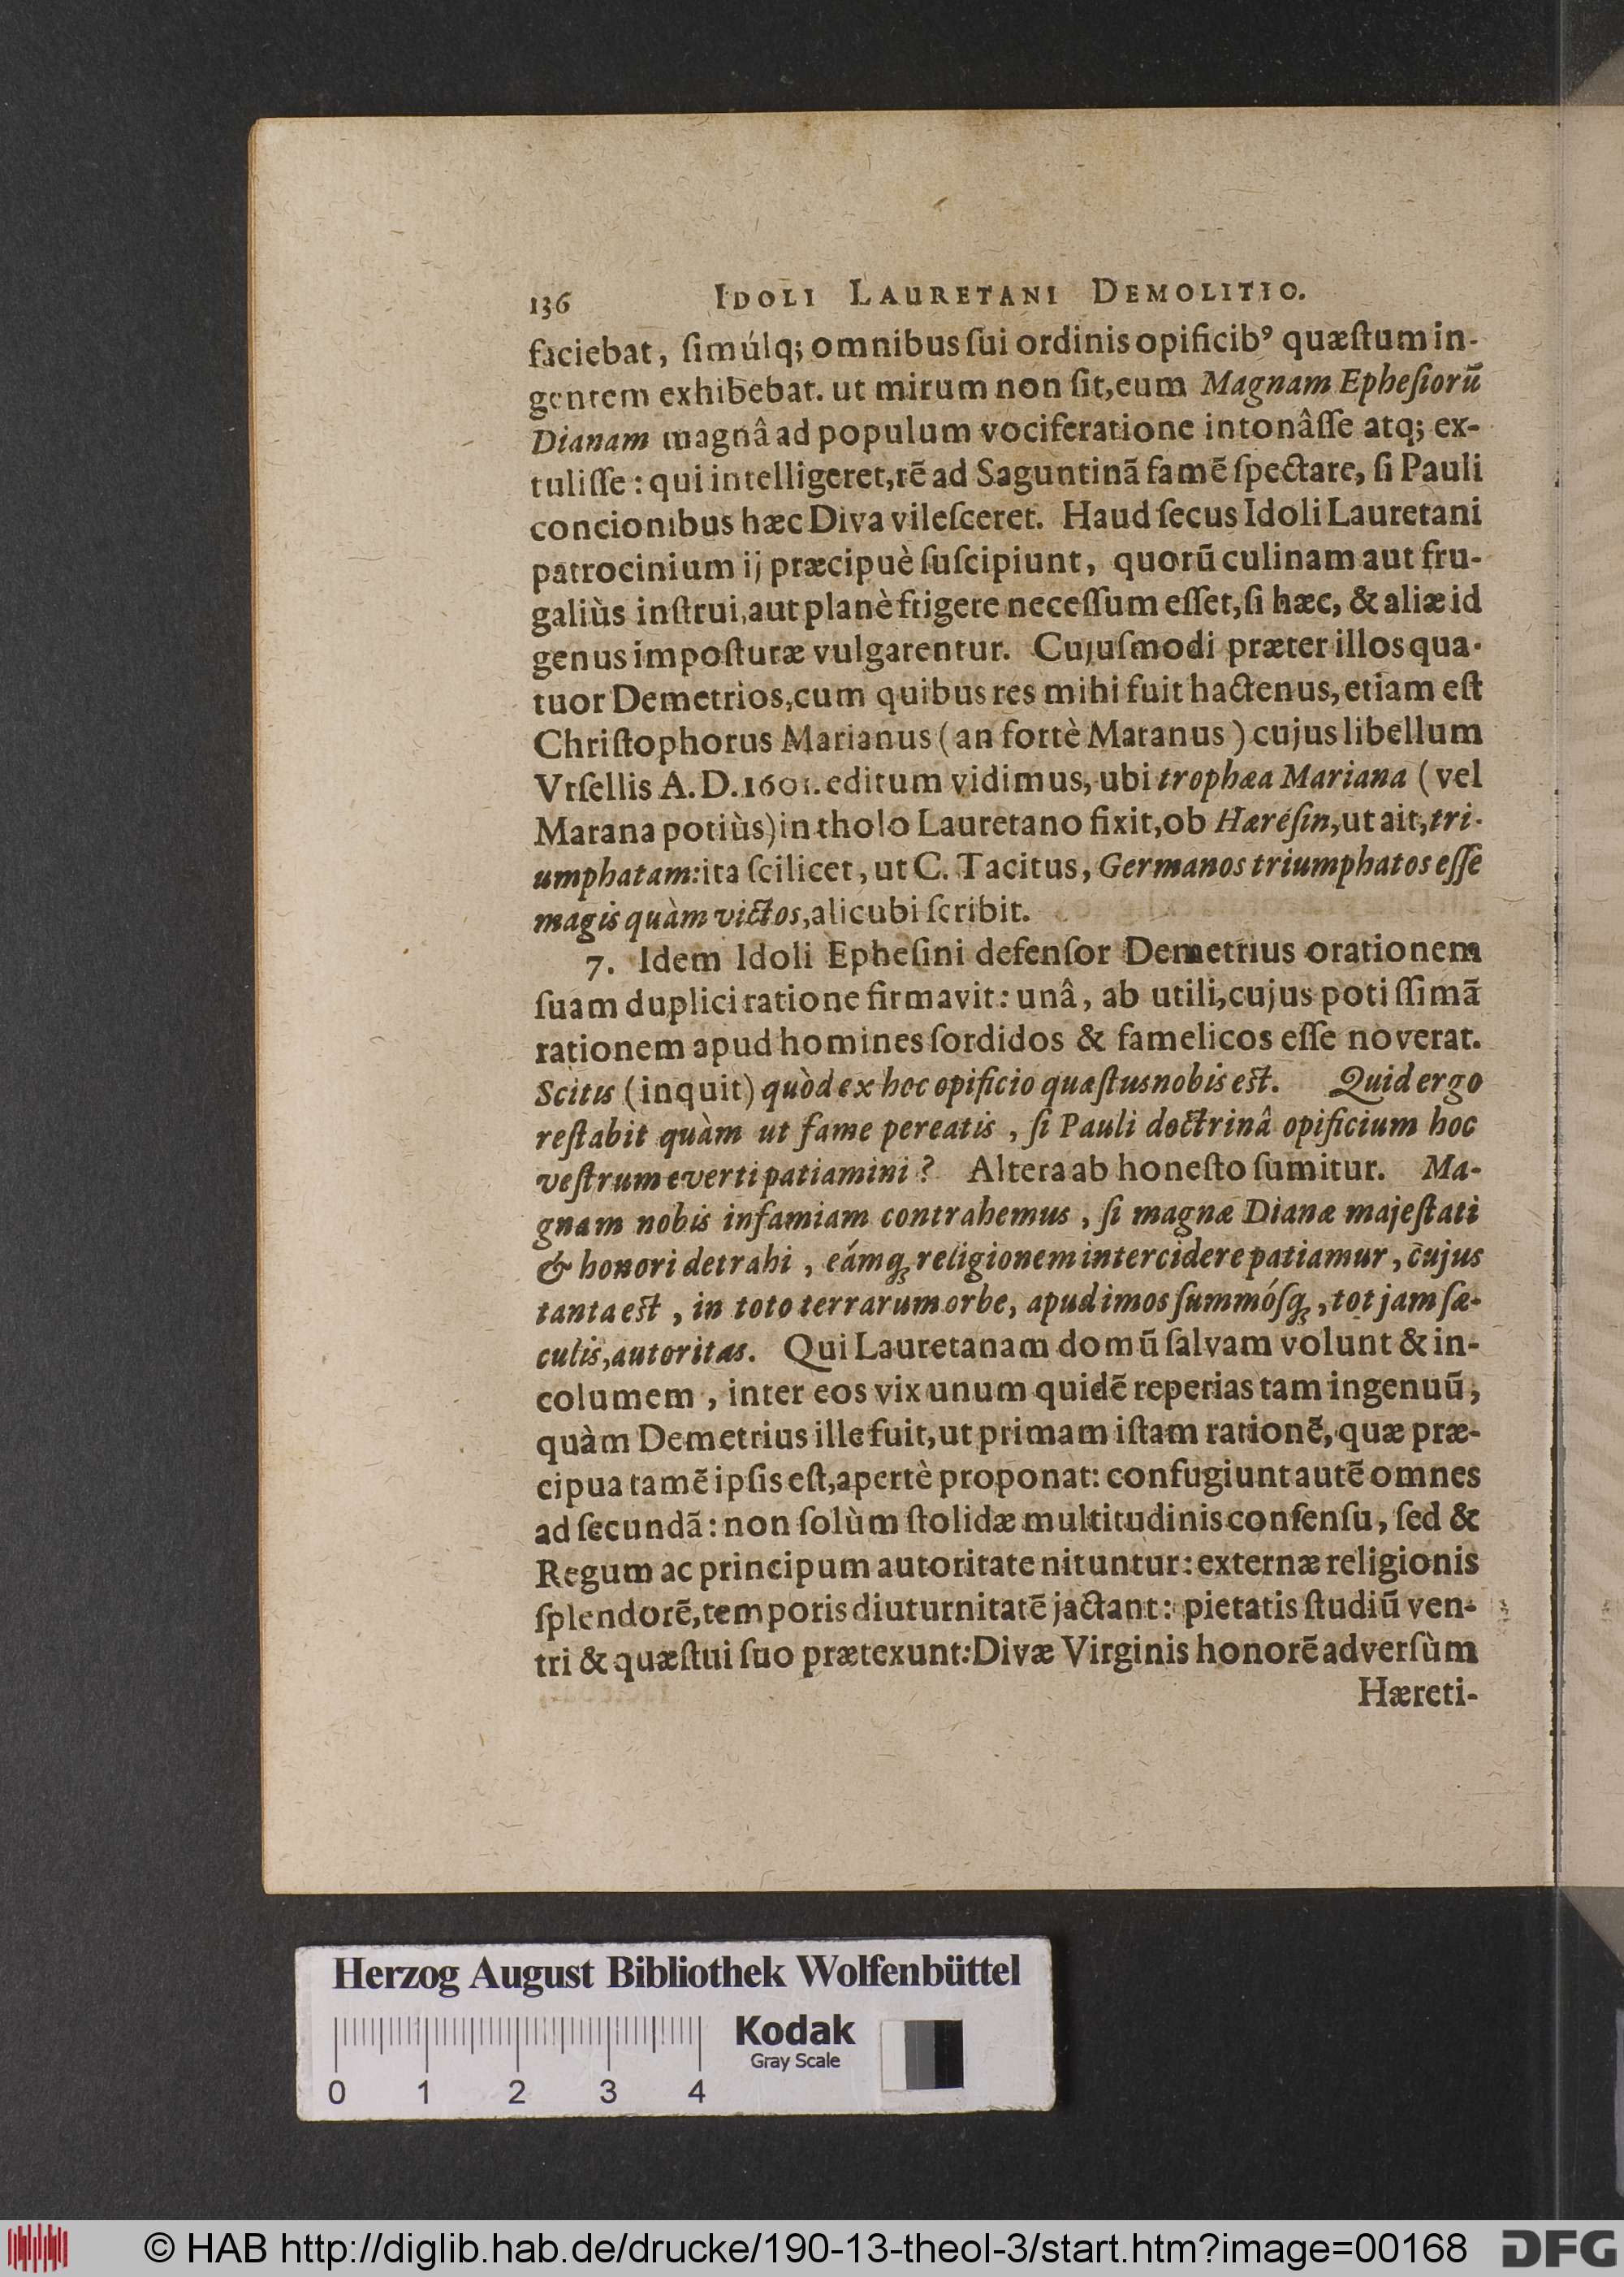 136 IDOLI LAURETANI DEMOLITIO.
faciebat, ſimúlq; omnibus ſui ordinis opificibꝰ quæſtum in-
gentem exhibebat. ut mirum non ſit, eum Magnam Epheſiorũ
Dianam magnâ ad populum vociferatione intonâſſe atq; ex-
tuliſſe: qui intelligeret, rẽ ad Saguntinã famẽ ſpectare, ſi Pauli
concionibus hæc Diva vileſceret. Haud ſecus Idoli Lauretani
patrocinium ij præcipuè ſuſcipiunt, quorũ culinam aut fru-
galiùs inſtrui, aut planè frigere neceſſum eſſet, ſi hæc, & aliæ id
genus impoſturæ vulgarentur. Cujuſmodi præter illos qua-
tuor Demetrios, cum quibus res mihi fuit hactenus, etiam eſt
Chriſtophorus Marianus (an fortè Maranus) cujus libellum
Vrſellis A. D. 1601. editum vidimus, ubi trophæa Mariana (vel
Marana potiùs) in tholo Lauretano fixit, ob Hæreſin, ut ait, tri-
umphatam: ita ſcilicet, ut C. Tacitus, Germanos triumphatos eſſe
magis quàm victos, alicubi ſcribit.
7. Idem Idoli Epheſini defenſor Demetrius orationem
ſuam duplici ratione firmavit: unâ, ab utili, cujus potiſſimã
rationem apud homines ſordidos & famelicos eſſe noverat.
Scitis (inquit) quòd ex hoc opificio quæſtus nobis eſt. Quid ergo
reſtabit quàm ut fame pereatis, ſi Pauli doctrinâ opificium hoc
veſtrum everti patiamini? Altera ab honeſto ſumitur. Ma-
gnam nobis infamiam contrahemus, ſi magnæ Dianæ majeſtati
& honori detrahi, eámq; religionem intercidere patiamur, cujus
tanta eſt, in toto terrarum orbe, apud imos ſummóſq;, tot jam ſæ-
culis, autoritas. Qui Lauretanam domũ ſalvam volunt & in-
columem, inter eos vix unum quidẽ reperias tam ingenuũ,
quàm Demetrius ille fuit, ut primam iſtam rationẽ, quæ præ-
cipua tamẽ ipſis eſt, apertè proponat: confugiunt autẽ omnes
ad ſecundã: non ſolùm ſtolidæ multitudinis conſenſu, ſed &
Regum ac principum autoritate nituntur: externæ religionis
ſplendorẽ, temporis diuturnitatẽ jactant: pietatis ſtudiũ ven-
tri & quæſtui ſuo prætexunt: Divæ Virginis honorẽ adverſùm
Hæreti-
Herzog August Bibliothek Wolfenbüttel
Kodak
Gray Scale
0 1 2 3 4
© HAB http://diglib.hab.de/drucke/190-13-theol-3/start.htm?image=00168 DFG